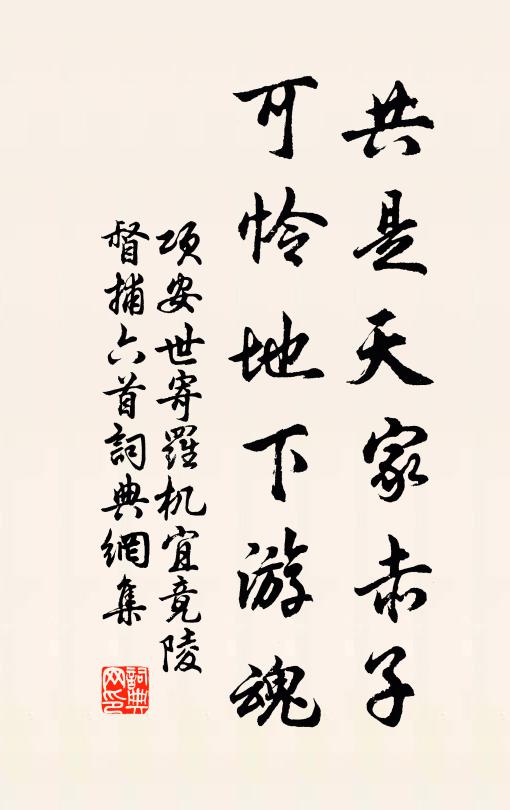 共是天家赤子
可怜地下游魂
项安世寄羅机宜竟陵
督捕六首詞典網集
詞典網印